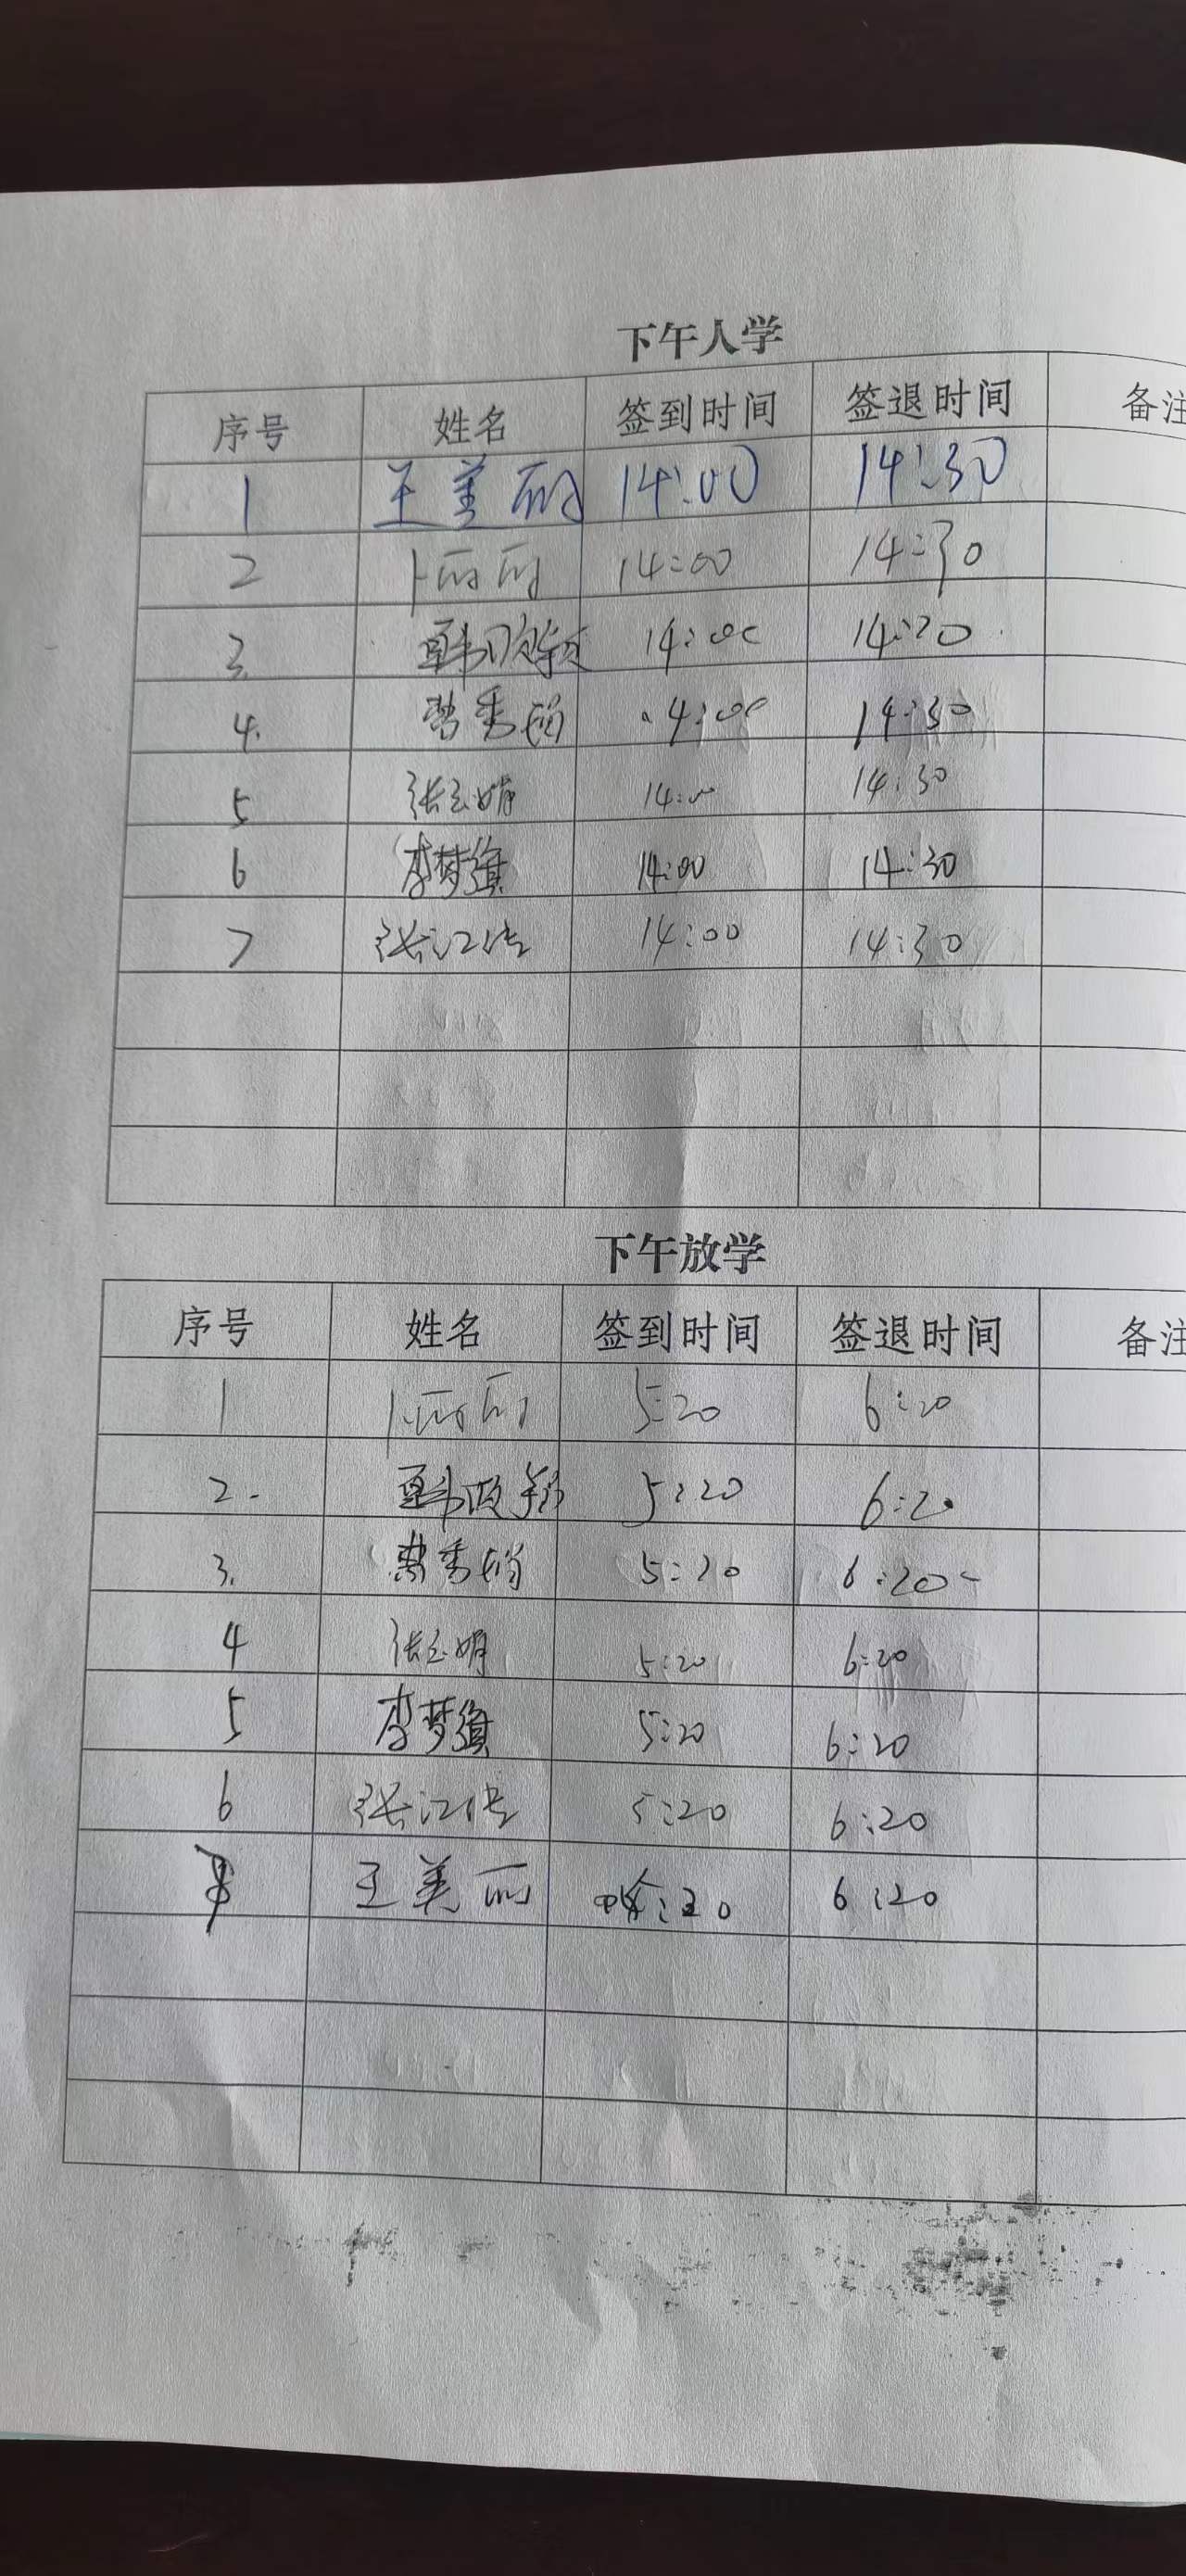 下午入学
序号 姓名 签到时间 签退时间 备注
1 王美丽 14:00 14:30
2 卜丽丽 14:00 14:30
3. 14:00
4. 曹秀娟 14:00 14:30
5 张玉娟 14:00 14:30
6 李梦 14:00 14:30
7 张江 14:00 14:30
下午放学
序号 姓名 签到时间 签退时间 备注
1 卜丽丽 5:20 6:20
2. 5:20 6:20
3. 曹秀娟 5:20 6:20
4 张玉娟 5:20 6:20
5 李梦 5:20 6:20
6 张江 5:20 6:20
王美丽 6:20